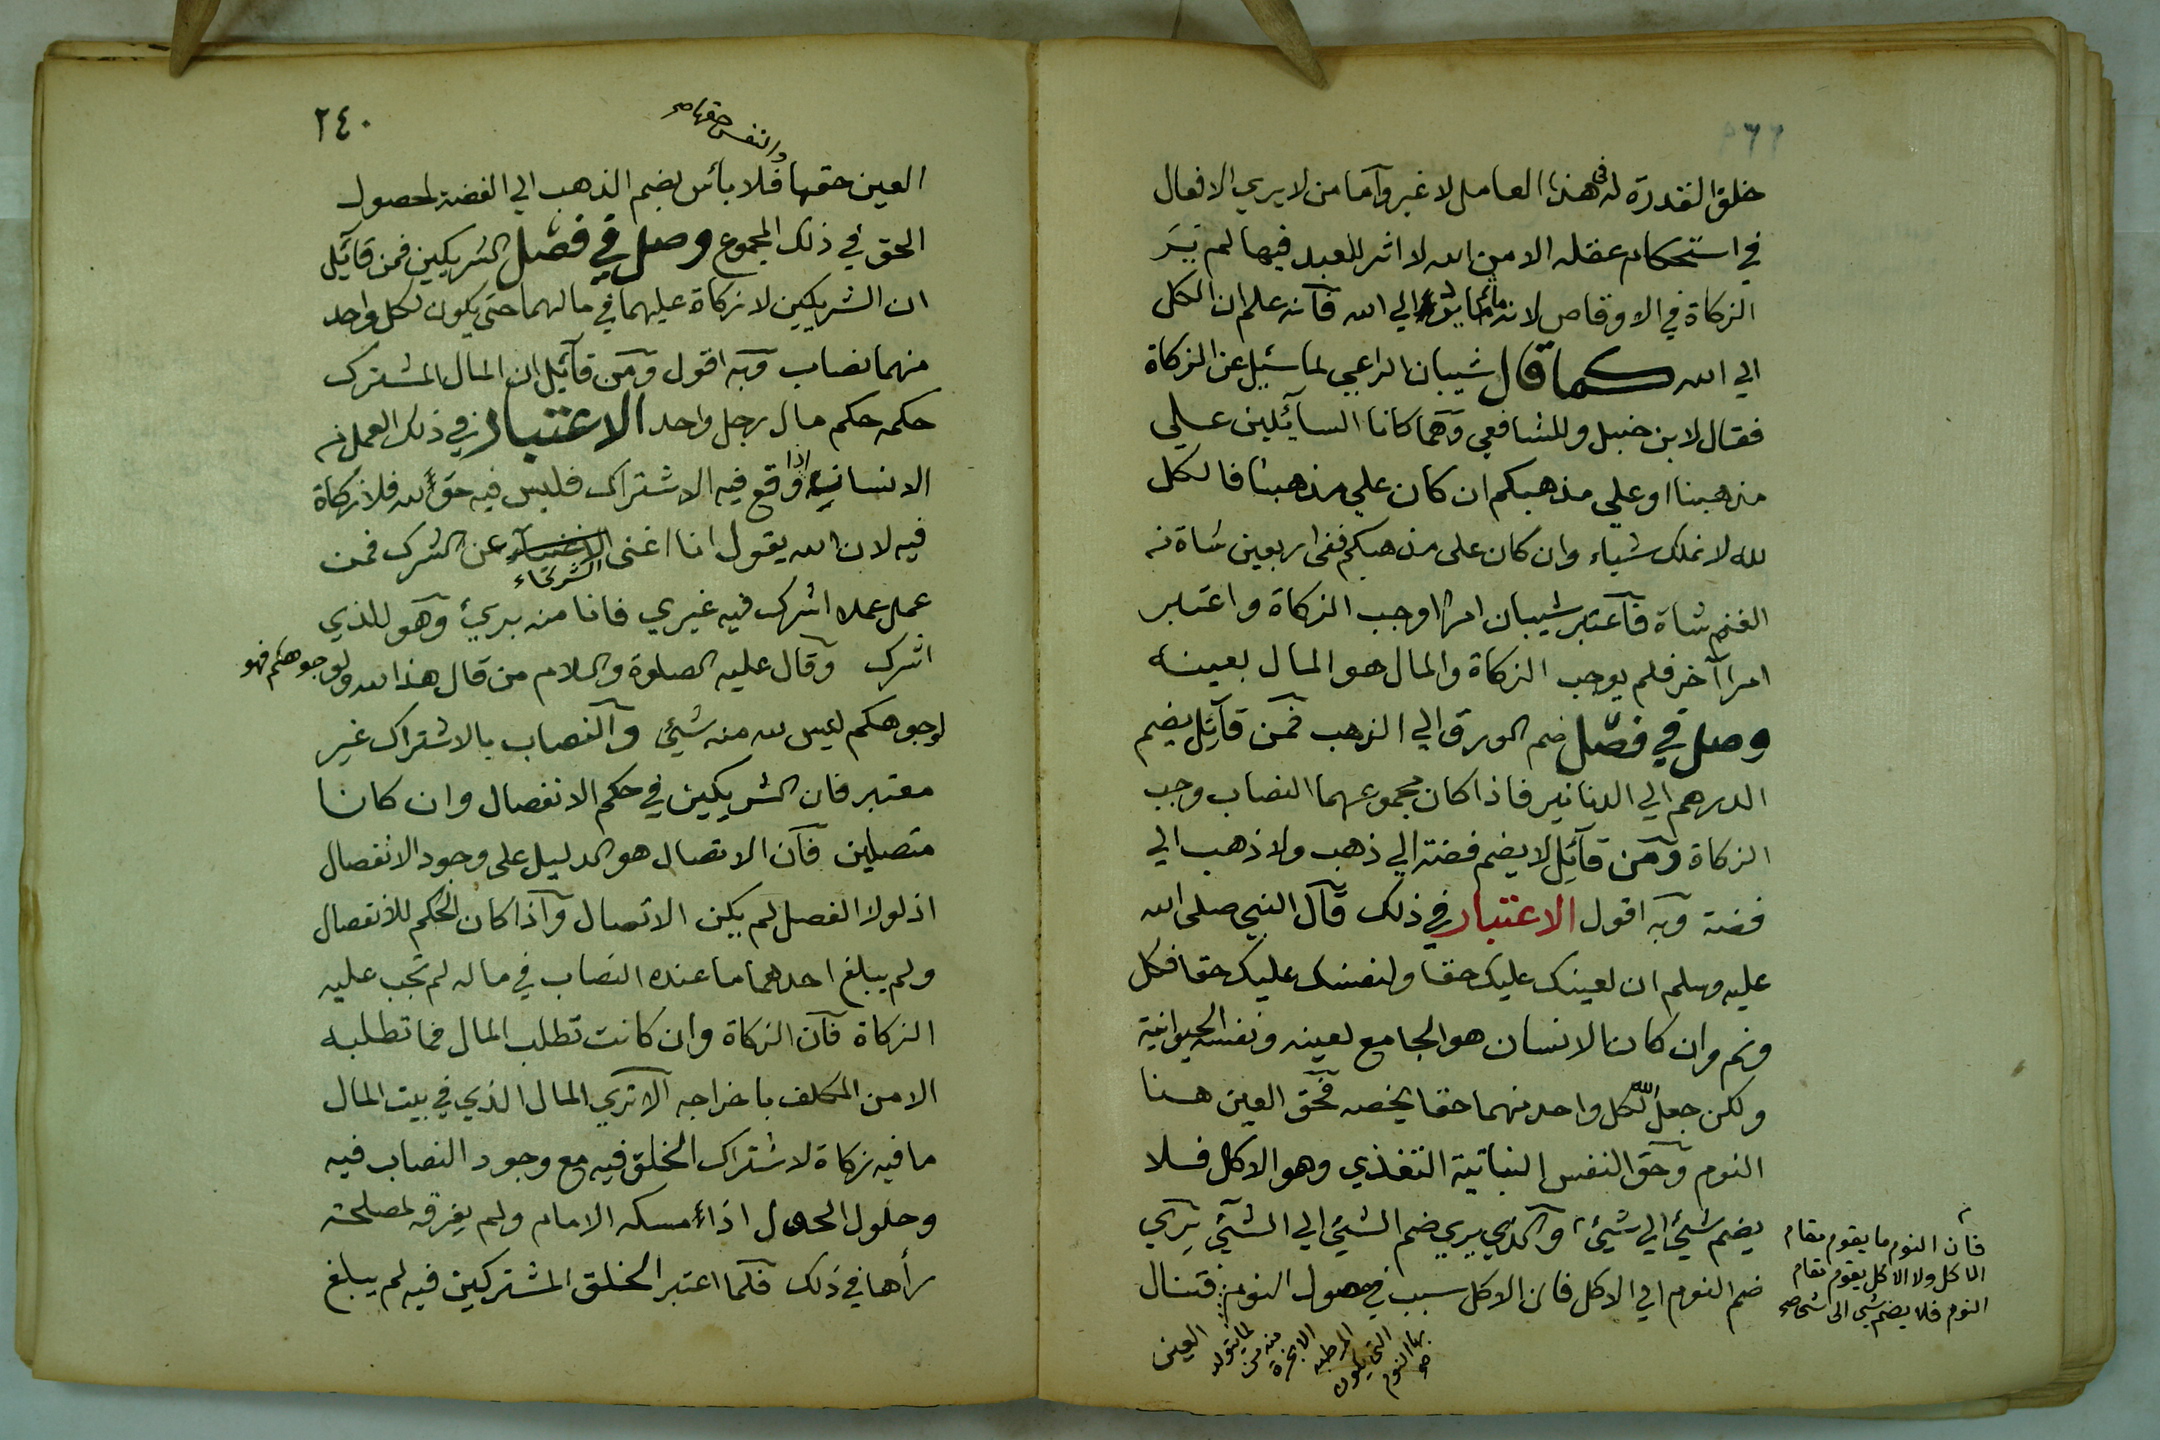 خلق القدرة له في هذا العامل لا غير وآما من لا يري الافعال
في استحكام عقله الا من الله لا اثر للعبد فيها لم يَرَ
الزكاة في الاوقاص لانه ما الي الله فآنه علم ان الكل
الي الله كما قال شيبان الراعي لما سئيل عن الزكاة
فقال لابن حنبل وللشافعي وهما كانا السآئلين علي
مذهبنا او علي مذهبكم ان كان علي مذهبنا فالكل
لله لا نملك شياء وان كان على مذهبكم ففي اربعين شاة من
الغنم شاة فآعتبر شيبان امرا اوجب الزكاة واعتبر
امرا آخر فلم يوجب الزكاة والمال هو المال بعينه
وصل في فصل ضم الورق الي الذهب فمن قآئل يضم
الدرهم الي الدنانير فاذا كان مجموعهما النصاب وجب
الزكاة ومن قآئل لا يضم فضة الي ذهب ولا ذهب الي
فضة وبه اقول الاعتبار في ذلك قآل النبي صلى الله
عليه وسلم ان لعينك عليك حقا ولنفسك عليك حقا فكل
ونم وان كان الانسان هو الجامع لعينه ونفسه الحيوانية
ولكن جعل الله لكل واحد منهما حقا يخصه فحق العين هنا
النوم وحق النفس النباتية التغذي وهو الاكل فلا
يضم شيئ الي شيئ وآلذي يري ضم الشيئ الي الشيئ يري
ضم النوم الي الاكل فان الاكل سبب في حصول النوم فتنال
فان النوم ما يقوم مقام
الاكل ولا الاكل يقوم مقام
النوم فلا يضم شي الى شي صح
لما يتولد
منه من
الابخرة
المرطبه
التي يكون
بها النوم
صح
العين
٢٤٠
والنفس حقها صح
العين حقها فلا بأس بضم الذهب الي الفضة لحصول
الحق في ذلك المجموع وصل في فصل الشريكين فمن قآئل
ان الشريكين لا زكاة عليهما في مالهما حتى يكون لكل واحد
منهما نصاب وبه اقول ومن قآئل ان المال المشترك
حكمه حكم مال رجل واحد الاعتبار في ذلك العمل من
الانسان اذا وقع فيه الاشتراك فليس فيه حق لله فلا زكاة
فيه لان الله يقول انا اغنى الشركاء عن الشرك فمن
عمل عملا اشرك فيه غيري فانا منه بريئ وهو للذي
اشرك وقال عليه الصلوة والسلام من قال هذا لله ولوجوهكم فهو
لوجوهكم ليس لله منه شيئ وآلنصاب بالاشتراك غير
معتبر فان الشريكين في حكم الانفصال وان كانا
متصلين فآن الاتصال هو الدليل على وجود الانفصال
اذ لولا الفصل لم يكن الاتصال وآذا كان الحكم للانفصال
ولم يبلغ احدهما ما عنده النصاب في ماله لم تجب عليه
الزكاة فآن الزكاة وان كانت تطلب المال فما تطلبه
الا من المكلف باخراجه آلا تري المال الذي في بيت المال
ما فيه زكاة لاشتراك الخلق فيه مع وجود النصاب فيه
وحلول الحول اذا أمسكه الامام ولم يفرقه لمصلحة
رأها في ذلك فلما اعتبر الخلق المشتركين فيه لم يبلغ